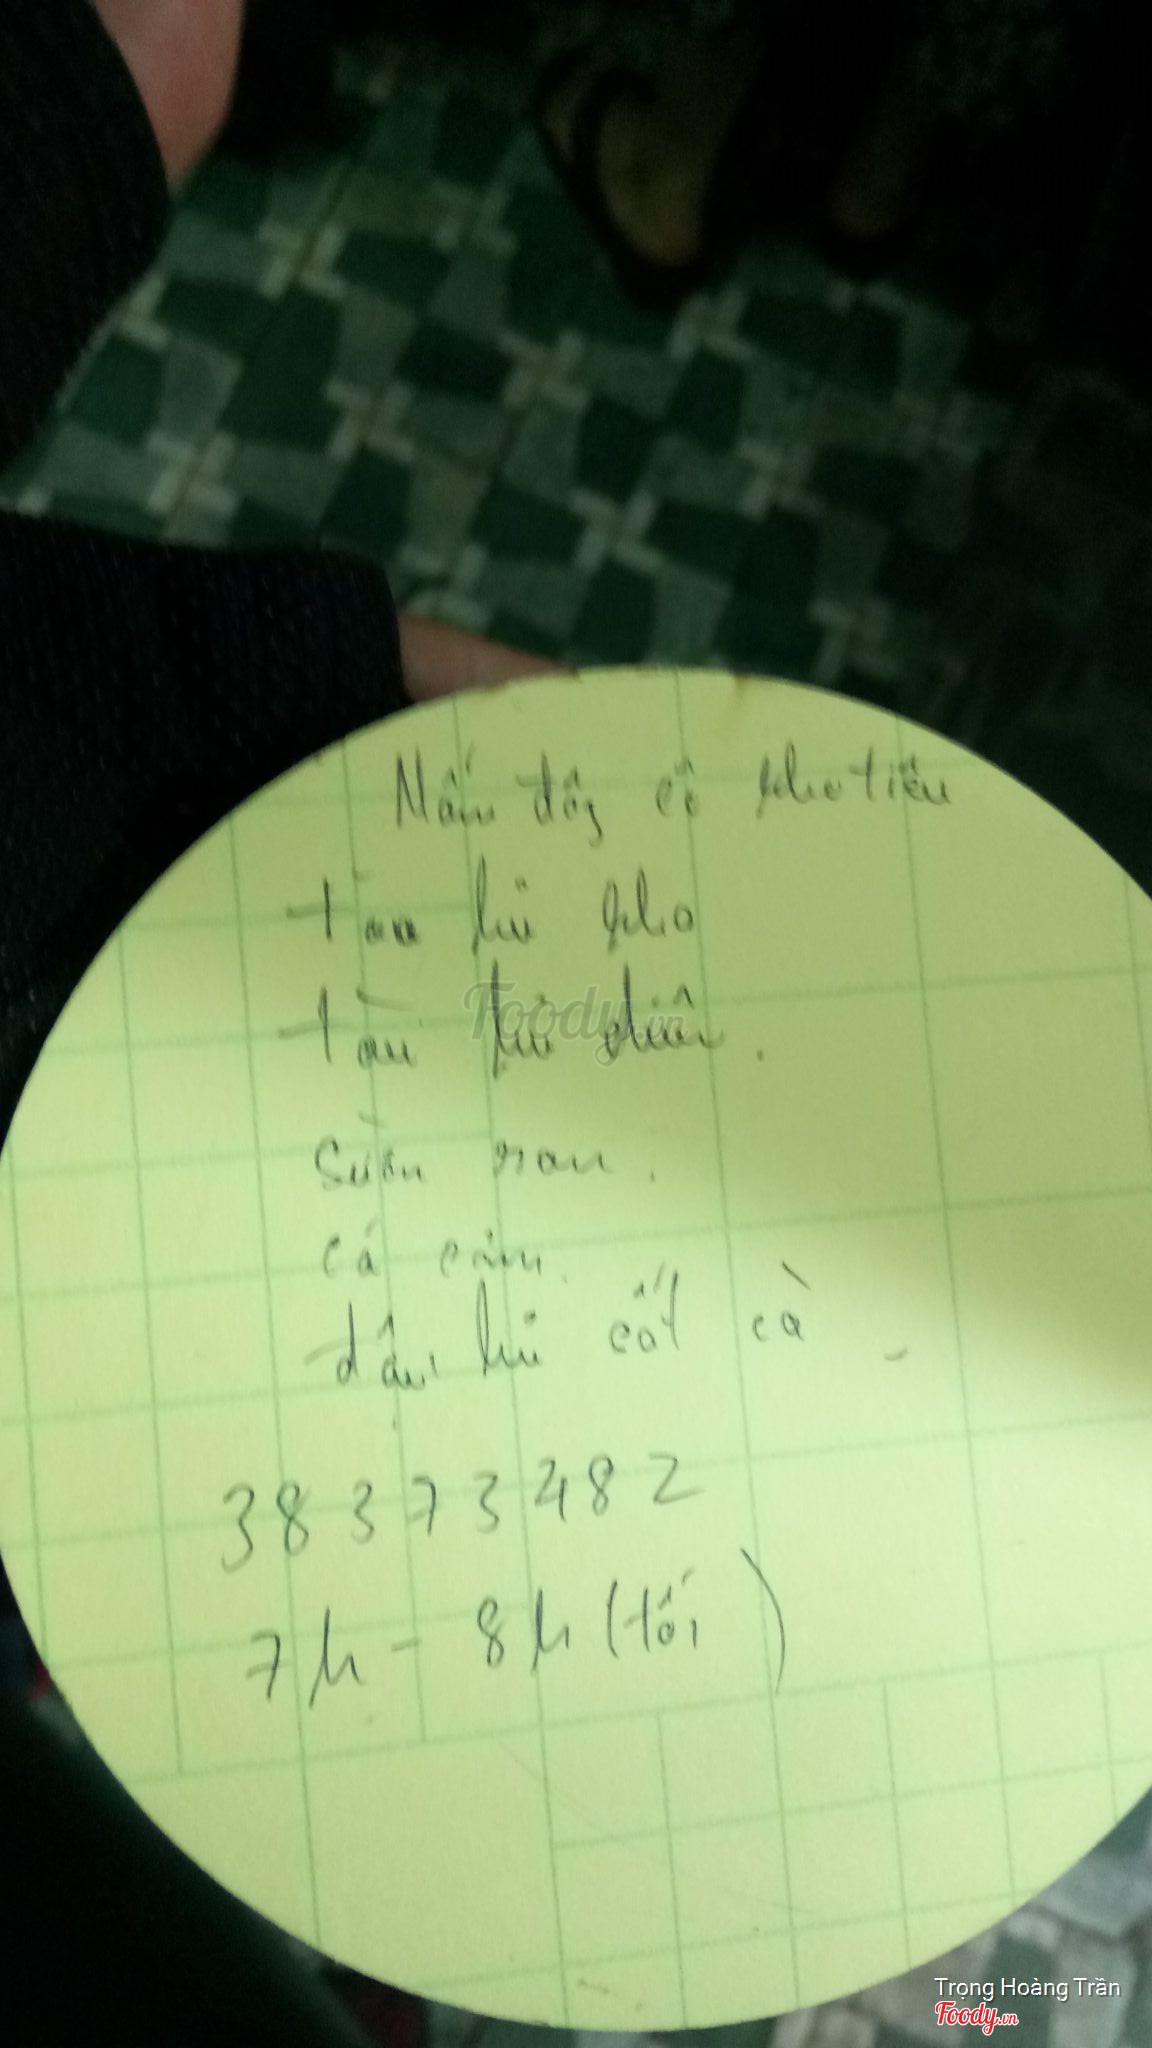 Nấm đông cô kho tiêu
tàu hủ kho
tàu hủ chiên.
Sườn non.
cá cơm.
đậu hủ cốt cà
38373482
7h - 8h (tối)
Foody.vn
Trọng Hoàng Trần
Foody.vn